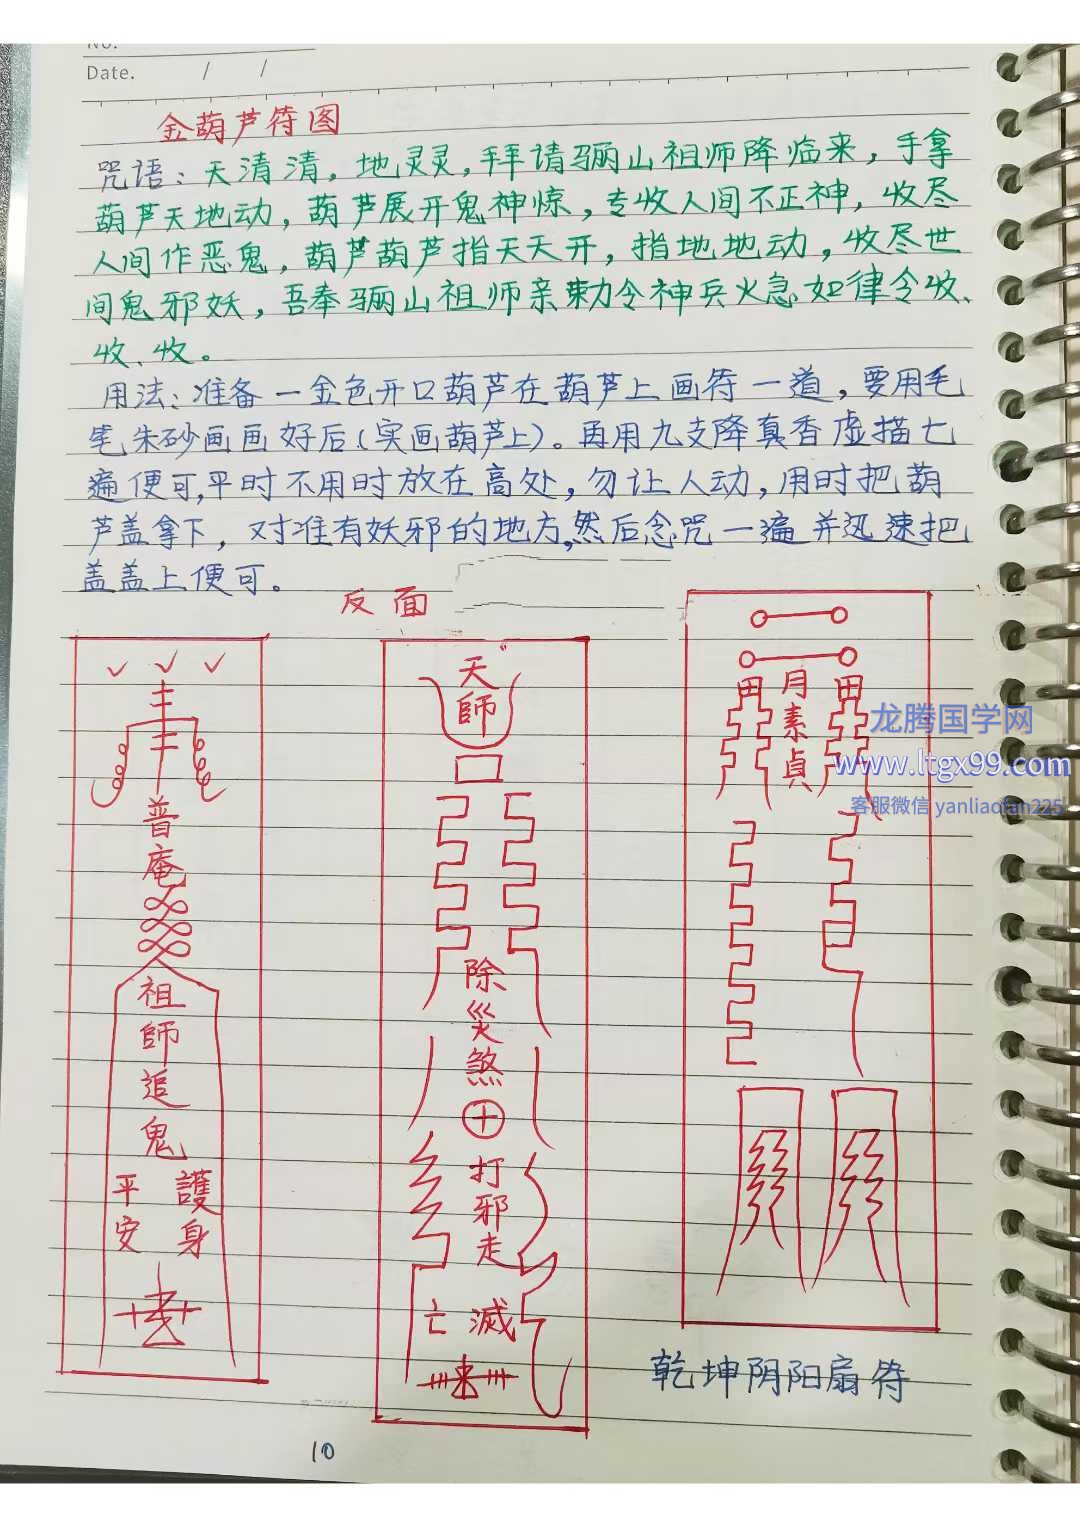 No.
Date. / /
金葫芦符图
咒语：天清清，地灵灵，拜请骊山祖师降临来，手拿
葫芦天地动，葫芦展开鬼神惊，专收人间不正神，收尽
人间作恶鬼，葫芦葫芦指天天开，指地地动，收尽世
间鬼邪妖，吾奉骊山祖师亲敕令神兵火急如律令收、
收、收。
用法：准备一金色开口葫芦在葫芦上画符一道，要用毛
笔朱砂画画好后（实画葫芦上）。再用九支降真香虚描七
遍便可，平时不用时放在高处，勿让人动，用时把葫
芦盖拿下，对准有妖邪的地方，然后念咒一遍并迅速把
盖盖上便可。
反面
普
庵
祖
師
追
鬼
平安
護身
天
師
除
災
煞
打
邪
走
亡 滅
田 月 田
素
貞
龙腾国学网
www.ltgx99.com
客服微信 yanliaofan225
乾坤阴阳扇符
10